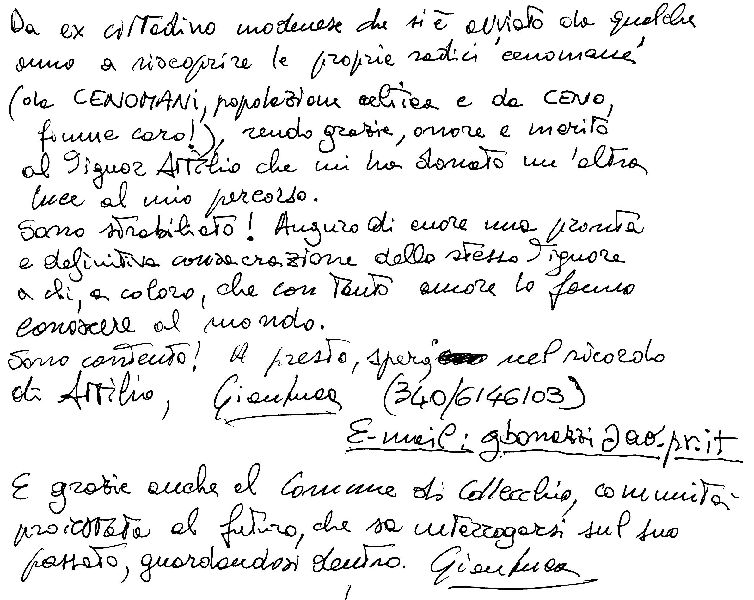 Da ex cittadino modenese che si è avviato da qualche
anno a riscoprire le proprie radici "cenomane"
(da CENOMANI, popolazione celtica e da CENO,
fiume caro!), rendo grazie, onore e merito
al Signor Attilio che mi ha donato un'altra
luce al mio percorso.
Sono strabiliato! Auguro di cuore una pronta
e definitiva consacrazione dello stesso Signore
a chi, a coloro, che con tanto amore lo fanno
conoscere al mondo.
Sono contento! A presto, spero nel ricordo
di Attilio, Gianluca (340/6146103)
E-mail: gbonazzi@ao.pr.it
E grazie anche al Comune di Collecchio, comunità
proiettata al futuro, che sa interrogarsi sul suo
passato, guardandosi dentro. Gianluca